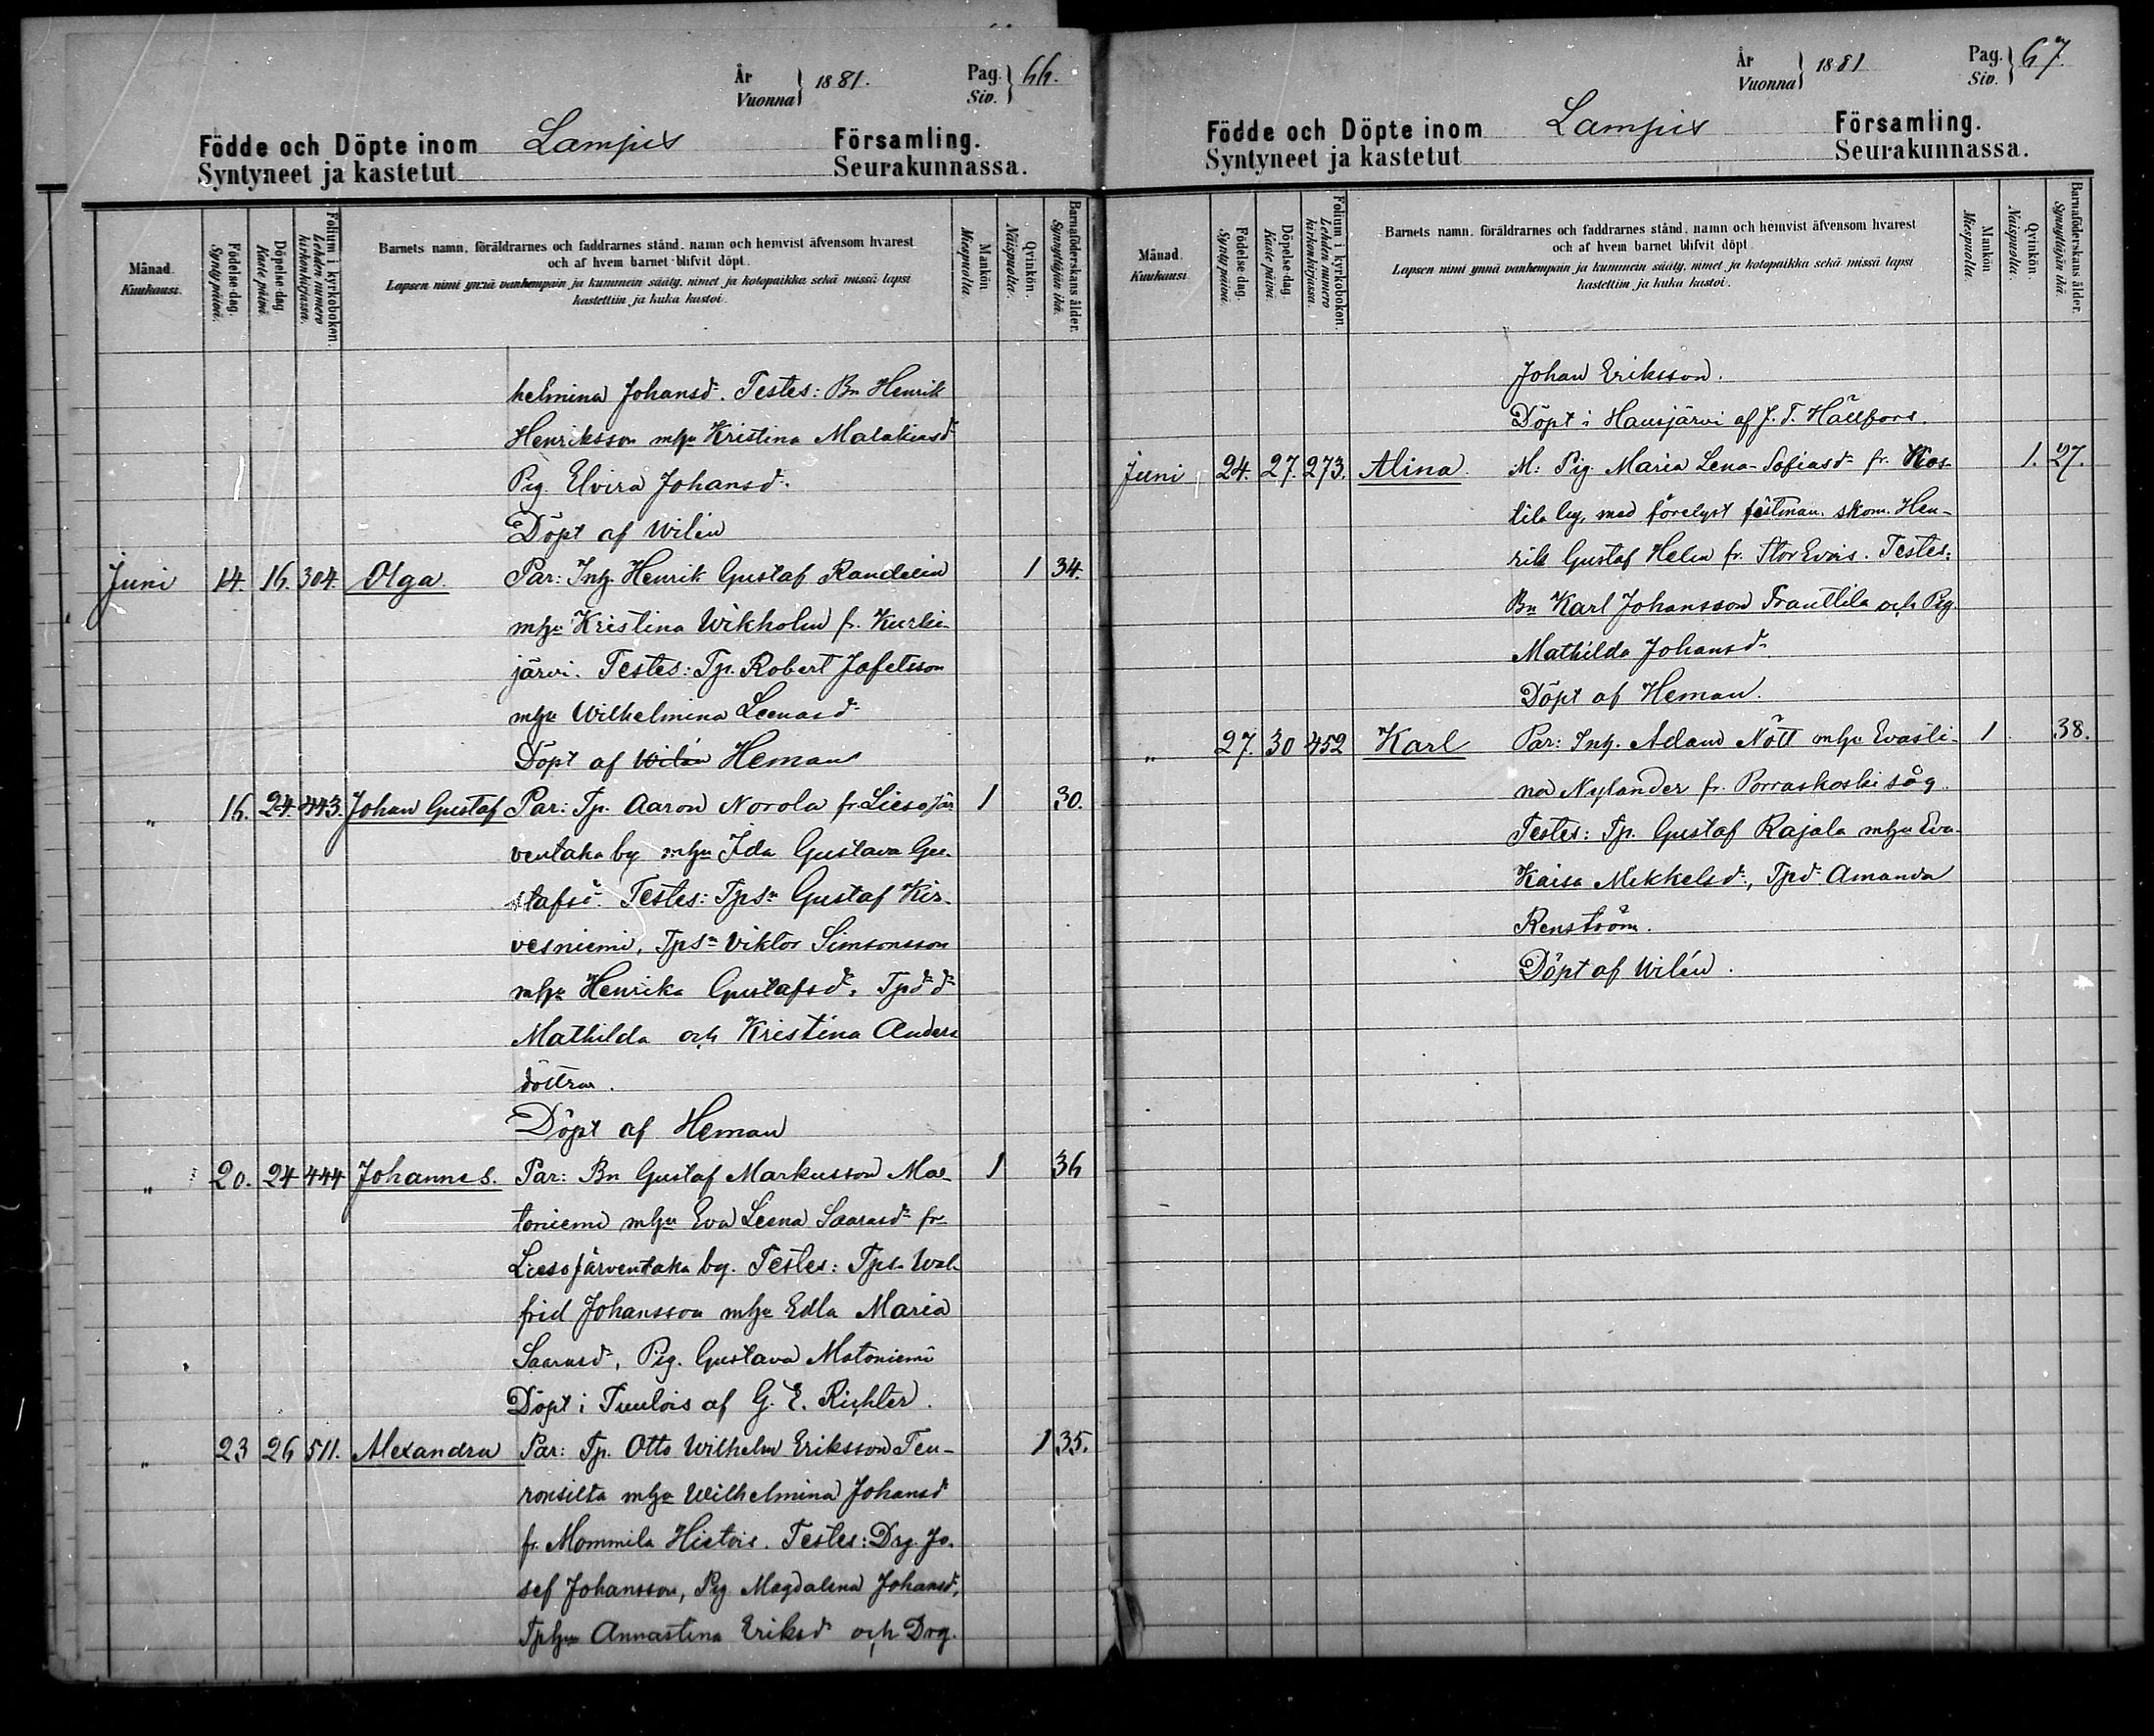 År
Vuonna} 1881.
Pag.
Siv.} 66.
Födde och Döpte inom Lampis Församling.
Syntyneet ja kastetut Seurakunnassa.
Månad.
Kuukausi.
Födelse-dag.
Synty päivä.
Döpelse-dag
Kaste päivä
Folium i kyrkoboken.
Lehden numero
kirkonkirjassa.
Barnets namn, föräldrarnes och faddrarnes stånd, namn och hemvist äfvensom hvarest
och af hvem barnet blifvit döpt.
Lapsen nimi ynnä vanhempain ja kummein sääty, nimet ja kotopaikka sekä missä lapsi
kastettiin ja kuka kastoi.
Mankön
Miespuolta.
Qvinkön.
Naispuolta.
Barnaföderskans ålder.
Synnyttäjän ikä.
helmina Johansdr. Testes: Bn Henrik
Henriksson mhu Kristina Malakiasdr
Pig. Elvira Johansdr.
Döpt af Wilén
Juni 14. 16. 304. Olga. Par: Inh. Henrik Gustaf Randelin 1 34.
mhu Kristina Wikholm fr. Kurki-
järvi. Testes: Tp. Robert Jafetsson
mhu Wilhelmina Leenasdr
Döpt af Wilén Heman
„ 16. 24. 443. Johan Gustaf Par: Tp. Aaron Norola fr. Liesojär 1 30.
ventaka by mhu Ida Gustava Gu-
stafsdr. Testes: Tpsn Gustaf Kir-
vesniemi, Tpsn Viktor Simsonsson
mhu Henrika Gustafsdr, Tpdr dr
Mathilda och Kristina Anders
döttrar.
Döpt af Heman
„ 20. 24 444 Johannes. Par: Bn Gustaf Markusson Ma- 1 36
toniemi mhu Eva Leena Saarasdr fr
Liesojärventaka by. Testes: Tpsn Wal-
frid Johansson mhu Edla Maria
Saarasdr, Pig. Gustava Matoniemi
Döpt i Tuulois af G. E. Richter.
„ 23 26 511. Alexandra Par: Tp. Otto Wilhelm Eriksson Teu- 1 35.
ronsilta mhu Wilhelmina Johansdr
fr. Mommila Hietois. Testes: Drg. Jo-
sef Johansson, Pig Magdalena Johansdr,
Tphu Annastina Eriksdr och Drg.
År
Vuonna} 1881
Pag.
Siv.} 67
Födde och Döpte inom Lampis Församling.
Syntyneet ja kastetut Seurakunnassa.
Månad.
Kuukausi.
Födelse-dag.
Synty päivä.
Döpelse-dag
Kaste päivä.
Folium i kyrkoboken.
Lehden numero
kirkonkirjassa.
Barnets namn, föräldrarnes och faddrarnes stånd, namn och hemvist äfvensom hvarest
och af hvem barnet blifvit döpt.
Lapsen nimi ynnä vanhempain ja kummein sääty, nimet ja kotopaikka sekä missä lapsi
kastettiin ja kuka kastoi.
Mankön
Miespuolta.
Qvinkön.
Naispuolta.
Barnaföderskans ålder.
Synnyttäjän ikä.
Johan Eriksson.
Döpt i Hausjärvi af J. T. Hällfors.
Juni 24. 27. 273. Alina. M: Pig. Maria Lena Sofiasdr fr. Kos- 1. 27.
tila by, med förelyst fästman skom. Hen-
rik Gustaf Helin fr. Stor Evois. Testes:
Bn Karl Johansson Frantila och Pig.
Mathilda Johansdr
Döpt af Heman.
„ 27. 30 452 Karl Par: Inh. Adam Nött mhu Evasti- 1 38.
na Nylander fr. Porraskoski såg.
Testes: Tp. Gustaf Rajala mhu Eva
Kaisa Mikkelsdr, Tpdr Amanda
Renström.
Döpt af Wilén.